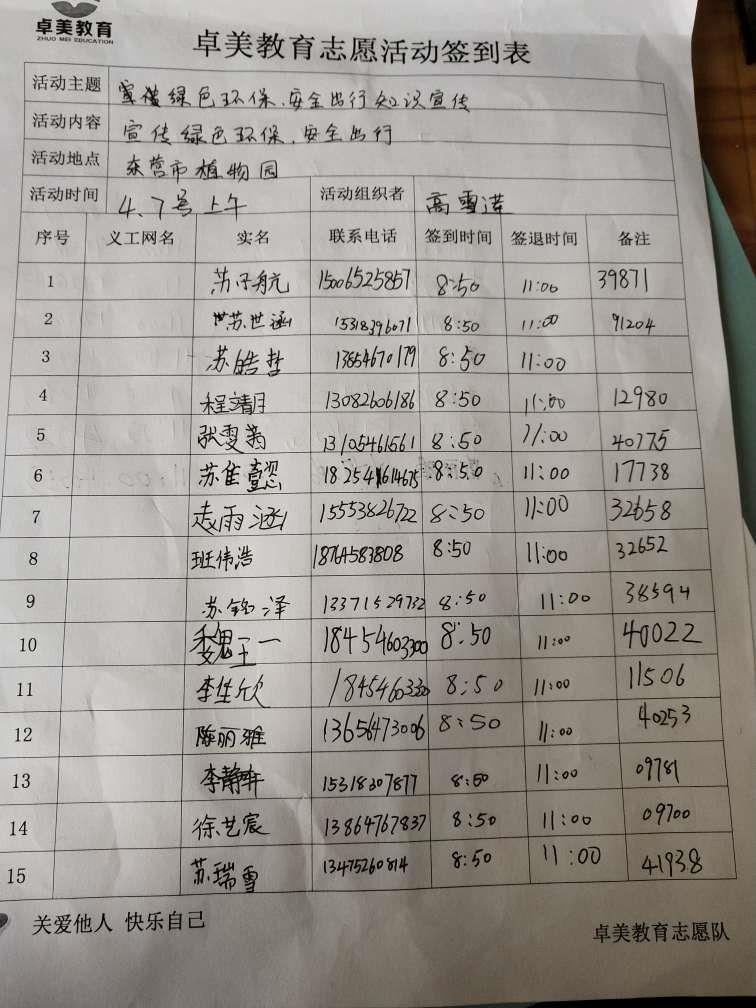 卓美教育
ZHUO MEI EDUCATION
卓美教育志愿活动签到表
活动主题 宣传绿色环保、安全出行知识宣传
活动内容 宣传绿色环保、安全出行
活动地点 东营市植物园
活动时间 4.7号上午 活动组织者 高雪莲
序号 义工网名 实名 联系电话 签到时间 签退时间 备注
1 苏子航 15006525857 8:50 11:00 39871
2 苏世涵 15318396071 8:50 11:00 91204
3 苏皓哲 13854670179 8:50 11:00
4 程靖月 13082606186 8:50 11:00 12980
5 13105461561 8:50 11:00 40775
6 8:50 11:00 17738
7 孟雨涵 15553826722 8:50 11:00 32658
8 班伟浩 18764583808 8:50 11:00 32652
9 苏铭泽 13371529732 8:50 11:00 38594
10 魏王一 18454603300 8:50 11:00 40022
11 李佳欣 18454603300 8:50 11:00 11506
12 陈丽雅 13656473006 8:50 11:00 40253
13 李静 15318307877 8:50 11:00 09781
14 徐艺宸 13864767837 8:50 11:00 09700
15 苏瑞雪 13475260814 8:50 11:00 41938
关爱他人 快乐自己
卓美教育志愿队